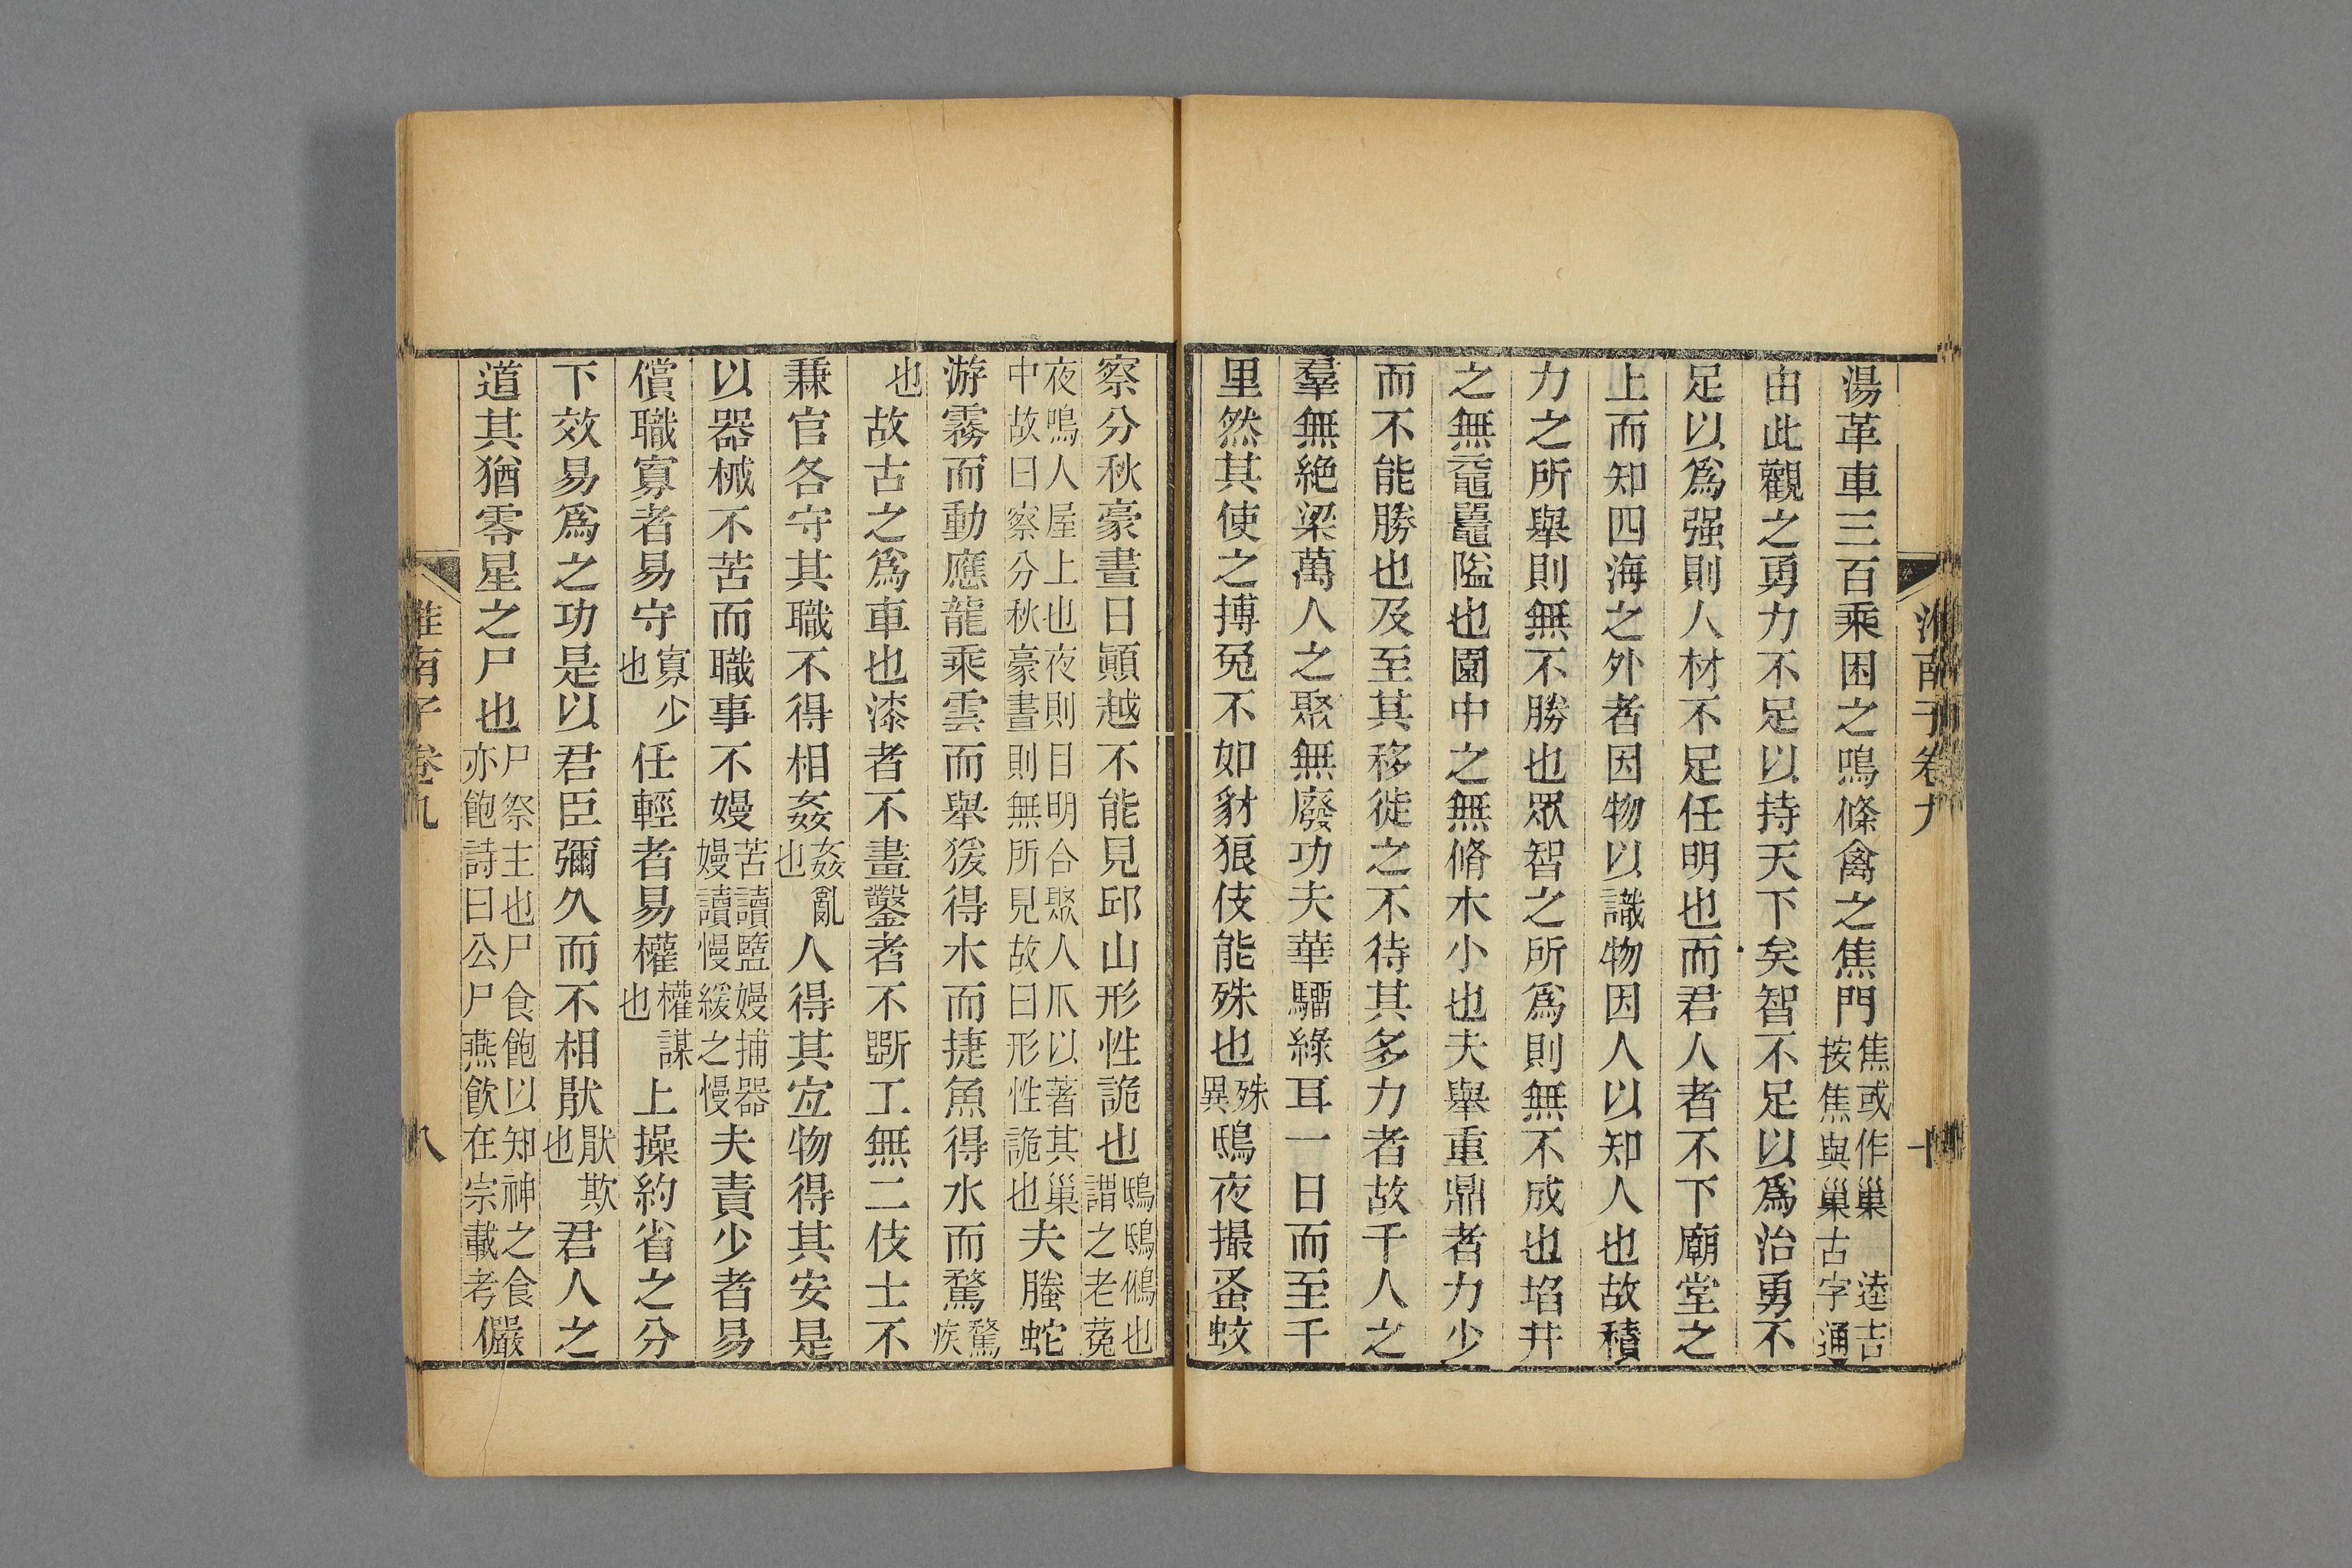 淮南子卷九
十
湯革車三百乘困之鳴條禽之焦門焦或作巢 逵吉按焦與巢古字通
由此觀之勇力不足以持天下矣智不足以爲治勇不
足以爲强則人材不足任明也而君人者不下廟堂之
上而知四海之外者因物以識物因人以知人也故積
力之所舉則無不勝也眾智之所爲則無不成也埳井
之無黿鼉隘也園中之無脩木小也夫舉重鼎者力少
而不能勝也及至其移徙之不待其多力者故千人之
羣無絕梁萬人之聚無廢功夫華騮綠耳一日而至千
里然其使之搏兔不如豺狼伎能殊也殊異鴟夜撮蚤蚊
察分秋豪晝日顚越不能見邱山形性詭也鴟鴟鵂也謂之老菟
夜鳴人屋上也夜則目明合聚人爪以著其巢中故曰察分秋豪晝則無所見故曰形性詭也夫螣蛇
游霧而動應龍乘雲而舉猨得木而捷魚得水而騖騖疾
也故古之爲車也漆者不畫鑿者不斲工無二伎士不
兼官各守其職不得相姦姦亂也人得其宜物得其安是
以器械不苦而職事不嫚苦讀盬嫚捕器嫚讀慢緩之慢夫責少者易
償職寡者易守寡少也任輕者易權權謀也上操約省之分
下效易爲之功是以君臣彌久而不相猒猒欺也君人之
道其猶零星之尸也尸祭主也尸食飽以知神之食亦飽詩曰公尸燕飮在宗載考儼
淮南子卷九
八